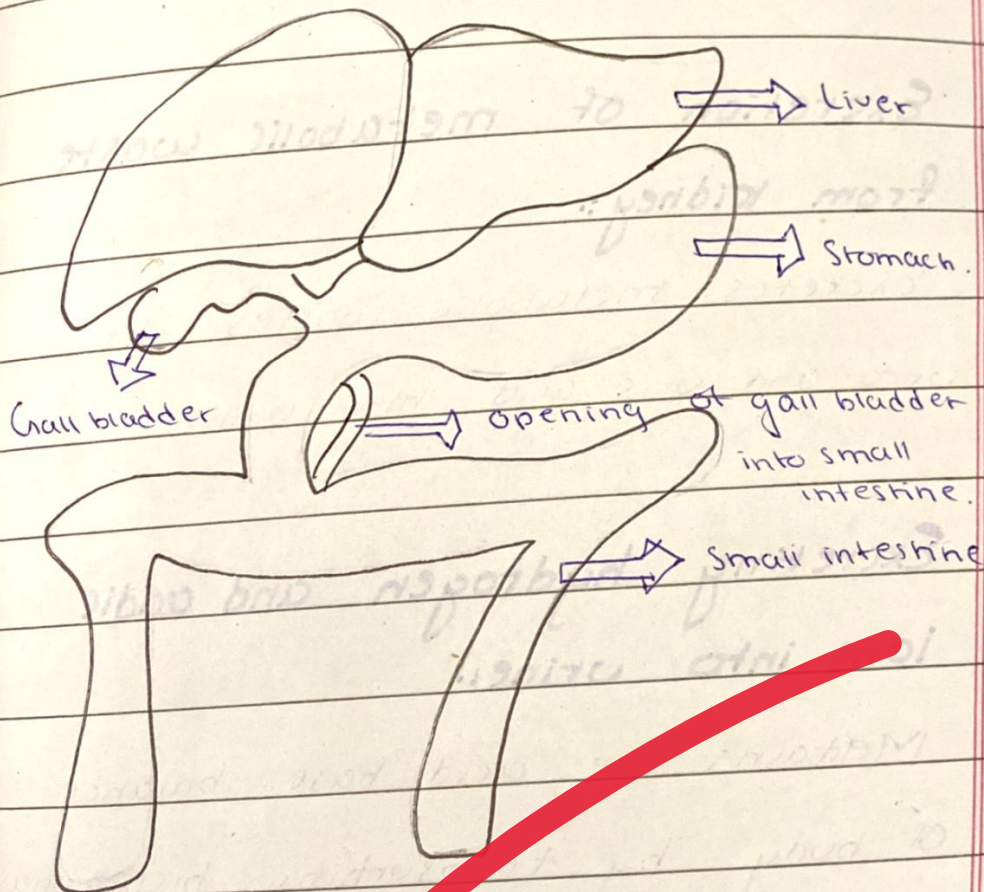 Liver
Stomach.
Gall bladder
opening of gall bladder
into small
intestine.
Small intestine